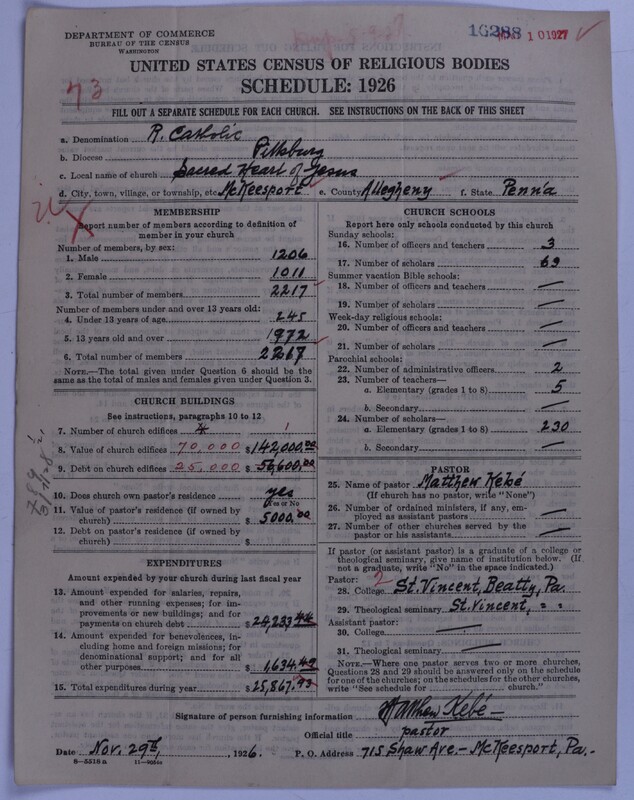 DEPARTMENT OF COMMERCE
BUREAU OF THE CENSUS
WASHINGTON
16288
10 1927
73
UNITED STATES CENSUS OF RELIGIOUS BODIES
SCHEDULE: 1926
FILL OUT A SEPARATE SCHEDULE FOR EACH CHURCH. SEE INSTRUCTIONS ON THE BACK OF THIS SHEET
a. Denomination R. Catholic
b. Diocese Pittsburg
c. Local name of church Sacred Heart of Jesus
d. City, town, village, or township, etc. McKeesport e. County Allegheny f. State Penn'a
MEMBERSHIP
Report number of members according to definition of
member in your church
Number of members, by sex:
1. Male 1206
2. Female 1011
3. Total number of members 2217
Number of members under and over 13 years old:
4. Under 13 years of age 245
5. 13 years old and over 1972
6. Total number of members 2217
NOTE.—The total given under Question 6 should be the
same as the total of males and females given under Question 3.
CHURCH BUILDINGS
See instructions, paragraphs 10 to 12
7. Number of church edifices 1
8. Value of church edifices 70,000 $142,000.00
9. Debt on church edifices 25,000 $56,600.00
10. Does church own pastor's residence yes
Yes or No
11. Value of pastor's residence (if owned by
church) $5000.00
12. Debt on pastor's residence (if owned by
church) $
EXPENDITURES
Amount expended by your church during last fiscal year
13. Amount expended for salaries, repairs,
and other running expenses; for im-
provements or new buildings; and for
payments on church debt $24,233.44
14. Amount expended for benevolences, in-
cluding home and foreign missions; for
denominational support; and for all
other purposes $1,634.49
15. Total expenditures during year $25,867.93
CHURCH SCHOOLS
Report here only schools conducted by this church
Sunday schools:
16. Number of officers and teachers 3
17. Number of scholars 69
Summer vacation Bible schools:
18. Number of officers and teachers —
19. Number of scholars —
Week-day religious schools:
20. Number of officers and teachers —
21. Number of scholars —
Parochial schools:
22. Number of administrative officers 2
23. Number of teachers—
a. Elementary (grades 1 to 8) 5
b. Secondary —
24. Number of scholars—
a. Elementary (grades 1 to 8) 230
b. Secondary —
PASTOR
25. Name of pastor Matthew Kebé
(If church has no pastor, write "None")
26. Number of ordained ministers, if any, em-
ployed as assistant pastors —
27. Number of other churches served by the
pastor or his assistants —
If pastor (or assistant pastor) is a graduate of a college or
theological seminary, give name of institution below. (If
not a graduate, write "No" in the space indicated.)
Pastor: 2
28. College St. Vincent, Beatty, Pa.
29. Theological seminary St. Vincent, " "
Assistant pastor:
30. College —
31. Theological seminary —
NOTE.—Where one pastor serves two or more churches,
Questions 28 and 29 should be answered only on the schedule
for one of the churches; on the schedules for the other churches,
write "See schedule for church."
Signature of person furnishing information Matthew Kebé
Official title pastor
Date Nov. 29th, 1926. P. O. Address 715 Shaw Ave.- McKeesport, Pa.-
8—5518a